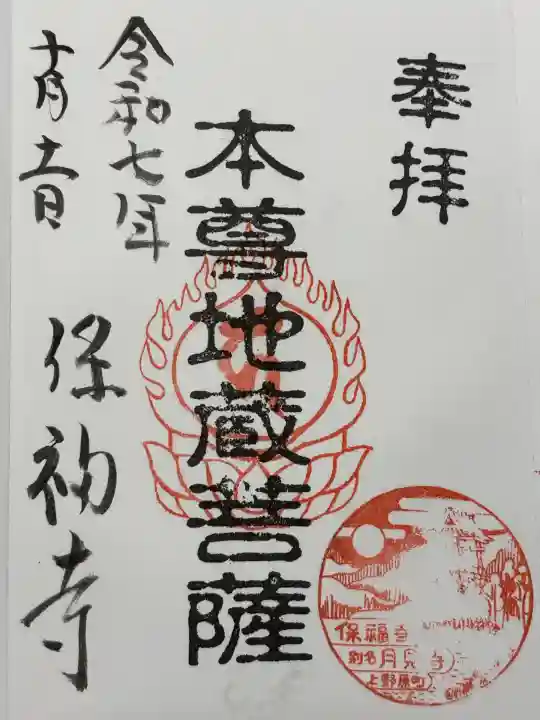 奉拝
本尊地蔵菩薩
令和七年
十月十一日
保福寺
保福寺
別名月見寺
上野原町